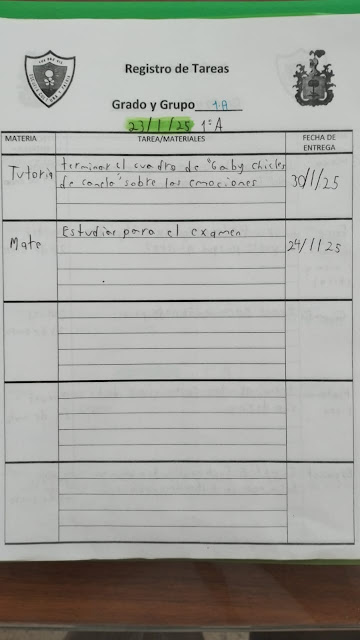 Registro de Tareas
Grado y Grupo 1·A
23/1/25 1°A
MATERIA TAREA/MATERIALES FECHA DE ENTREGA
Tutoria terminar el cuadro de "Gaby chicles
de canela" sobre las emociones
30/1/25
Mate Estudiar para el examen
24/1/25